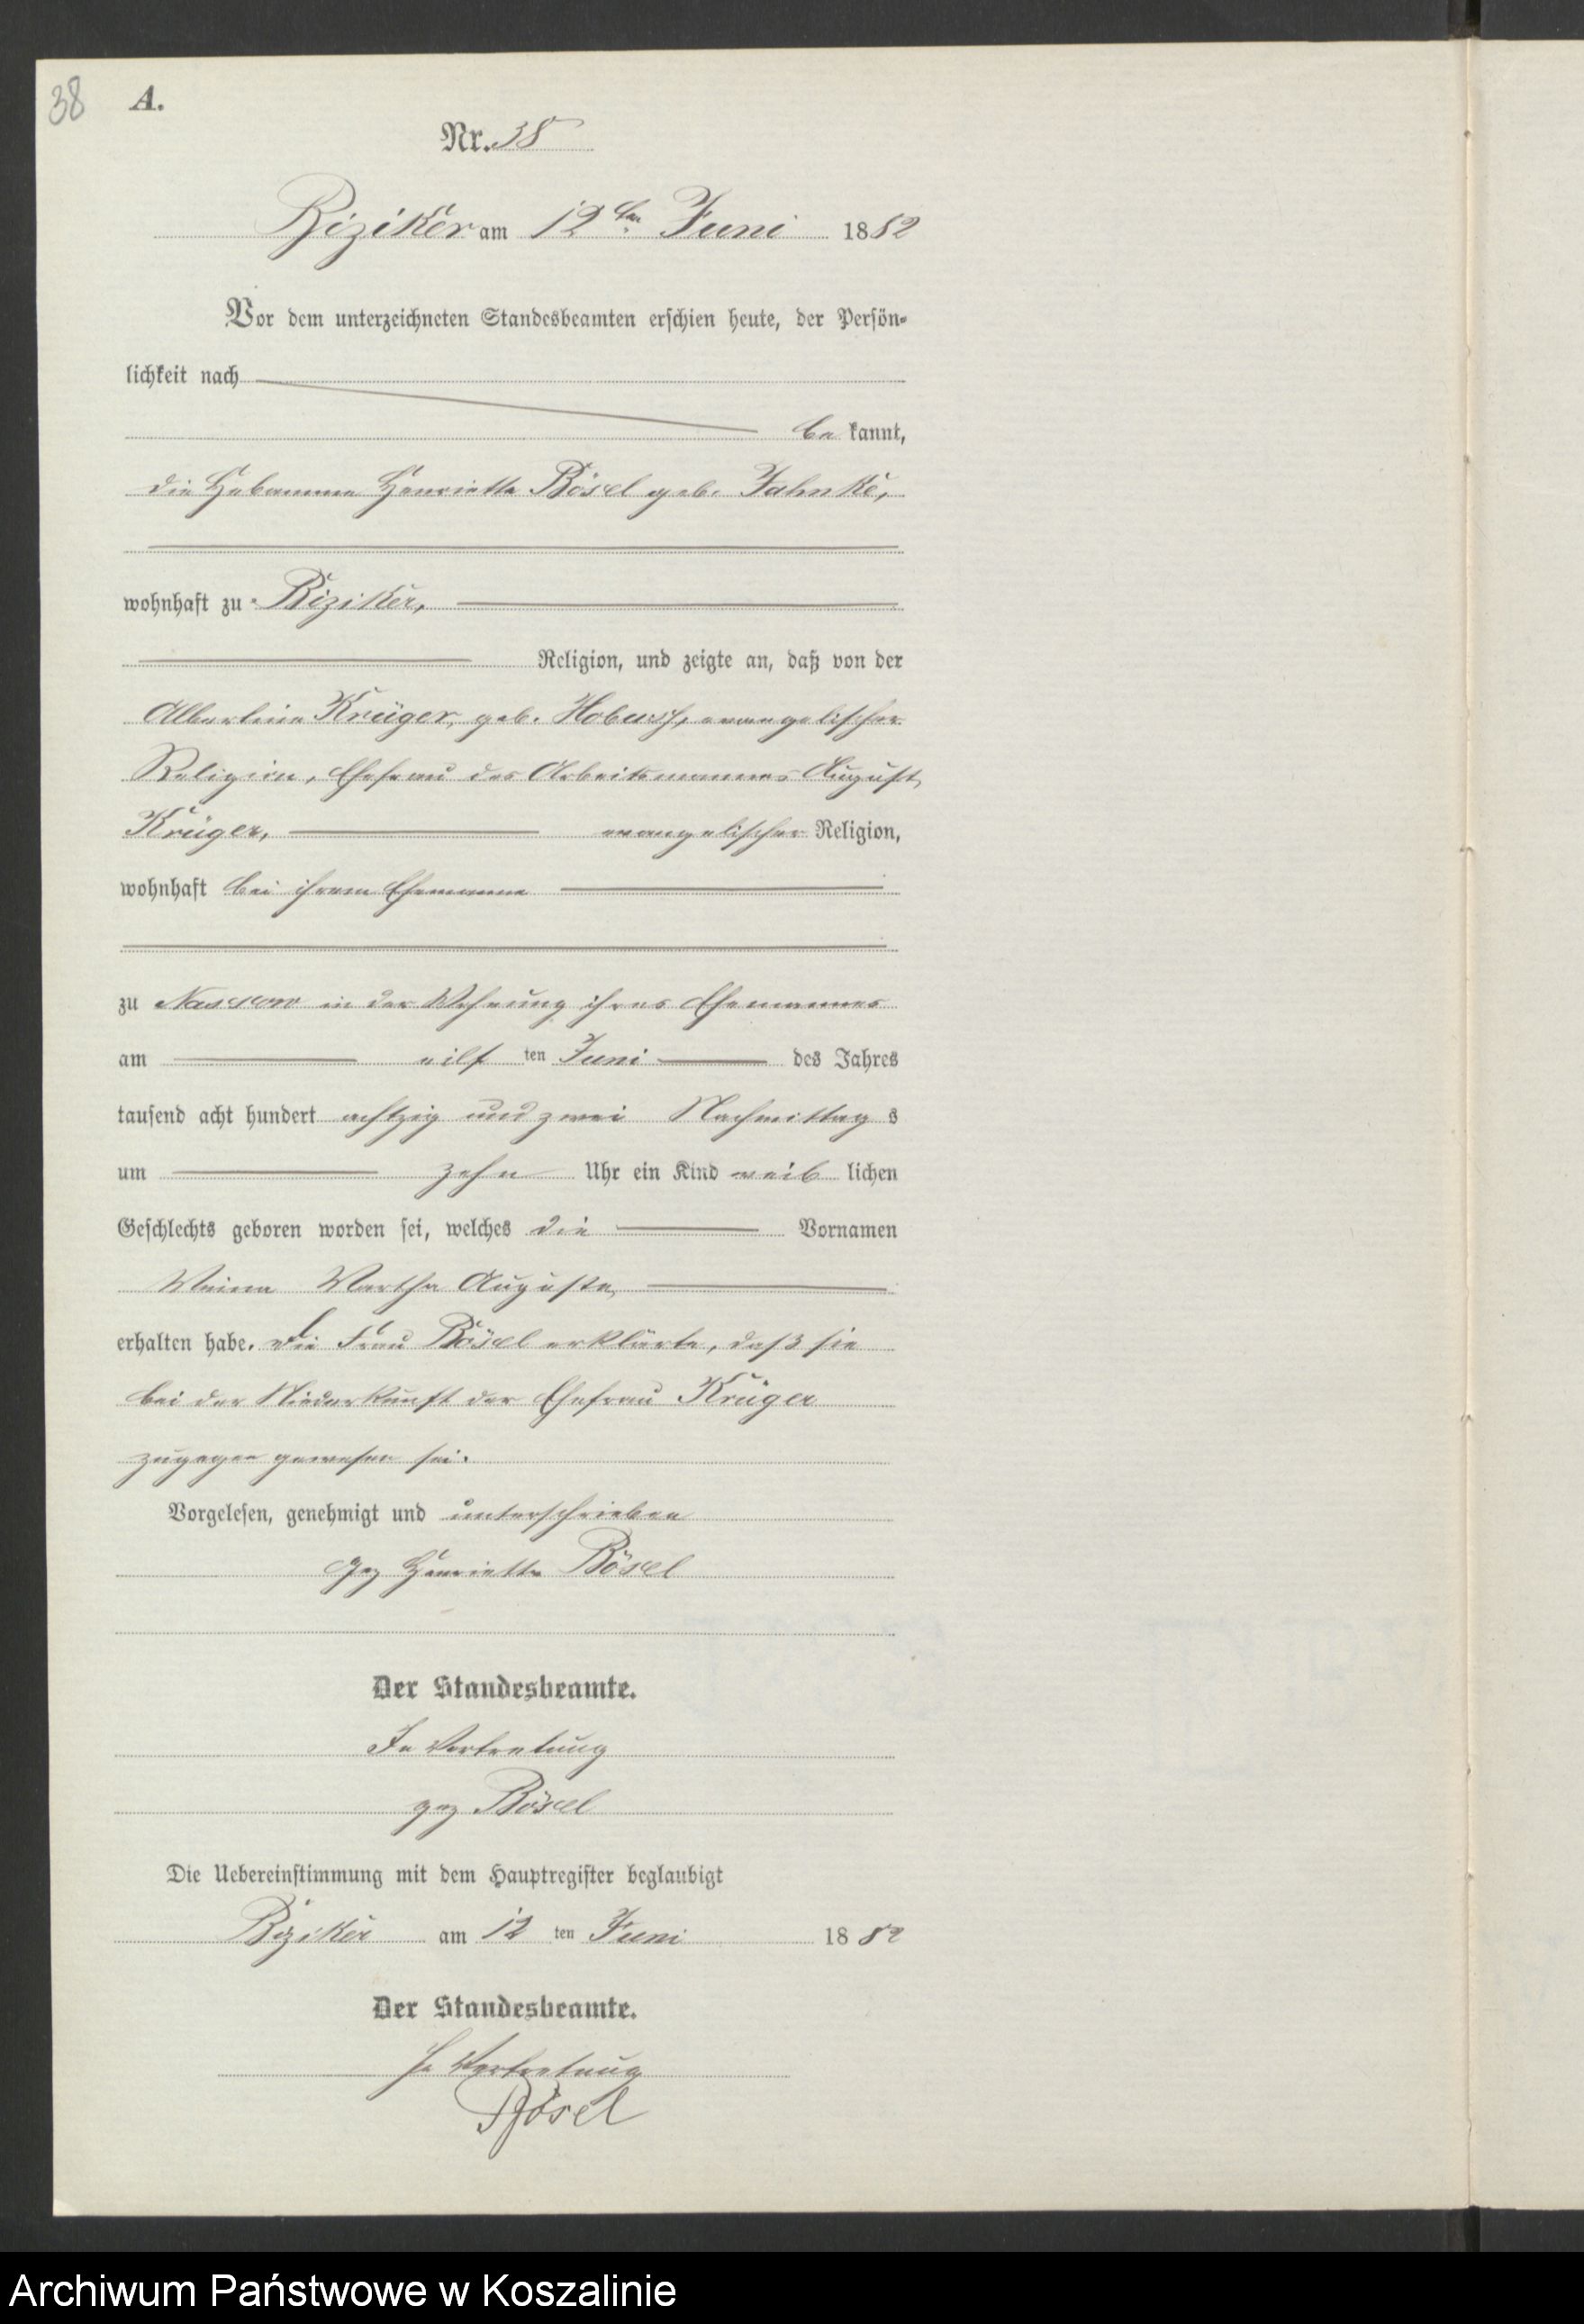 38 A.
Nr. 38
Biziker am 12ten Juni 1882
Vor dem unterzeichneten Standesbeamten erschien heute, der Persön-
lichkeit nach
be kannt,
die Hebamme Henriette Bösel geb. Jahnke,
wohnhaft zu Biziker,
Religion, und zeigte an, daß von der
Albertine Krüger, geb. evangelischer
Religion, Ehefrau des Arbeitsmannes August
Krüger, evangelischer Religion,
wohnhaft bei ihrem Ehemanne
zu Nassow in der Wohnung ihres Ehemannes
am eilf ten Juni des Jahres
tausend acht hundert achtzig und zwei Nachmittag s
um zehn Uhr ein Kind weib lichen
Geschlechts geboren worden sei, welches die Vornamen
Martha Auguste,
erhalten habe. Die Frau Bösel erklärte, daß sie
bei der Niederkunft der Ehefrau Krüger
zugegen gewesen sei.
Vorgelesen, genehmigt und unterschrieben
gez Henriette Bösel
Der Standesbeamte.
In Vertretung
gez Bösel
Die Uebereinstimmung mit dem Hauptregister beglaubigt
Biziker am 12 ten Juni 18 82
Der Standesbeamte.
In Vertretung
Bösel
Archiwum Państwowe w Koszalinie